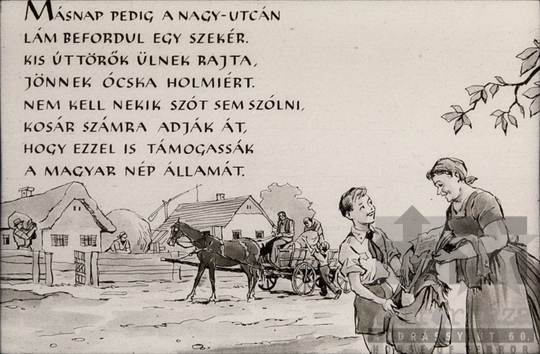 MÁSNAP PEDIG A NAGY-UTCÁN
LÁM BEFORDUL EGY SZEKÉR.
KIS ÚTTÖRŐK ÜLNEK RAJTA,
JÖNNEK ÓCSKA HOLMIÉRT.
NEM KELL NEKIK SZÓT SEM SZÓLNI,
KOSÁR SZÁMRA ADJÁK ÁT,
HOGY EZZEL IS TÁMOGASSÁK
A MAGYAR NÉP ÁLLAMÁT.
ANDRÁSSY ÚT 60.
HOUSE OF TERROR